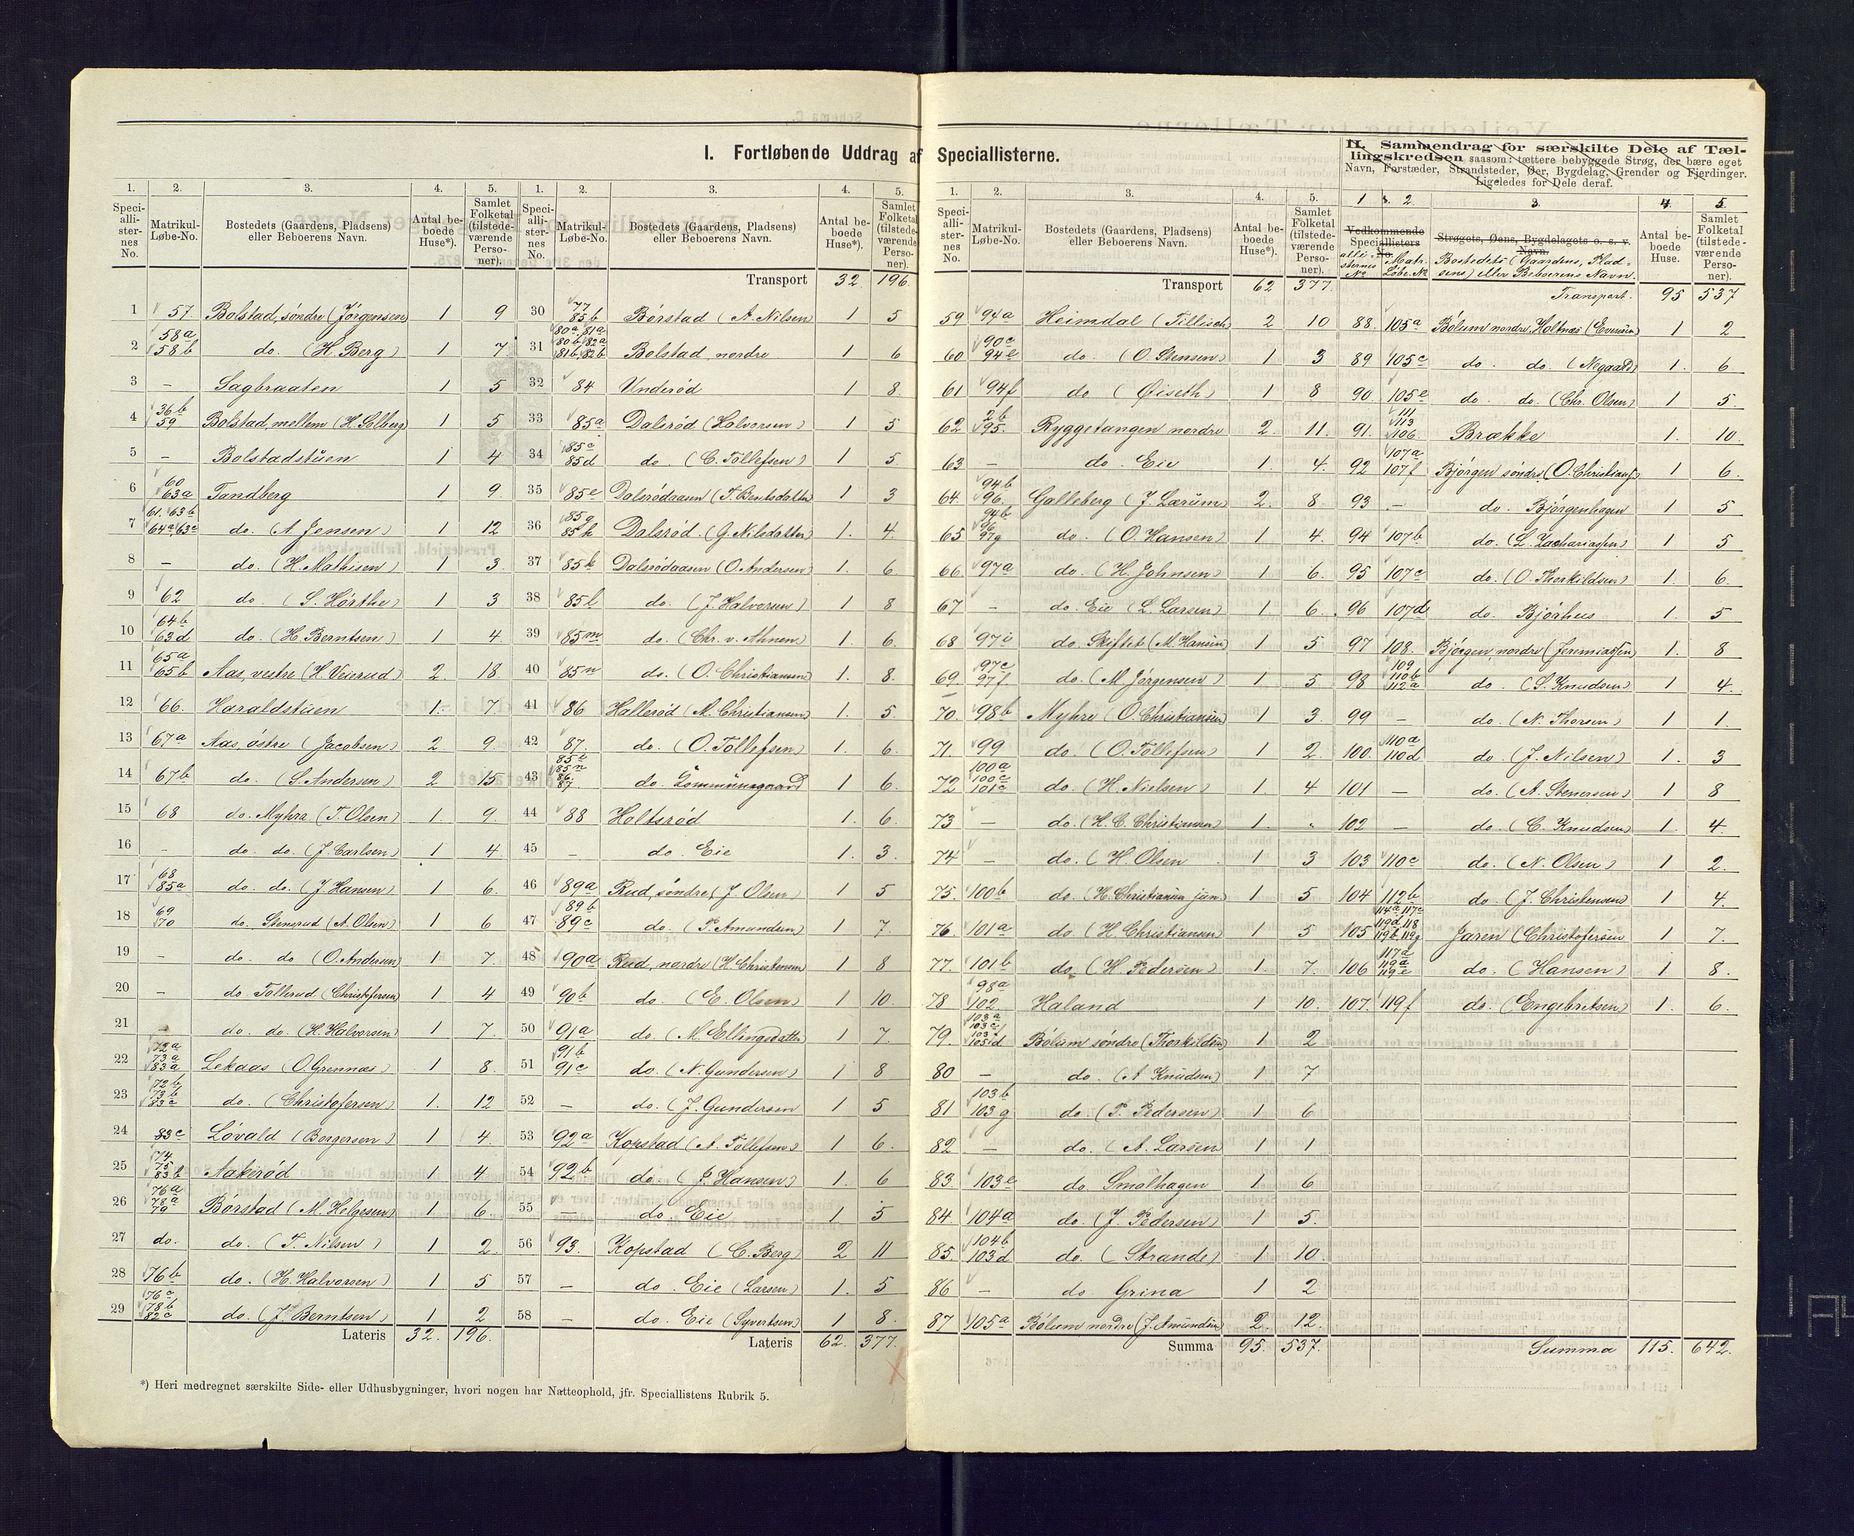 I. Fortløbende Uddrag af Speciallisterne.
II. Sammendrag for særskilte Dele af Tæl-
lingskredsen saasom: tættere bebyggede Strøg, der bære eget
Navn, Forstæder, Strandsteder, Øer, Bygdelag, Grender og Fjerdinger.
Ligeledes for Dele deraf.
1. 2. 3. 4. 5.
Speci-allister-nes No. Matrikul-Løbe-No. Bostedets (Gaardens, Pladsens) eller Beboerens Navn. Antal be-boede Huse*). Samlet Folketal (tilstede-værende Perso-ner).
1 57 Bolstad, søndre (Jørgensen) 1 9
2 58a 58b do. (H. Berg) 1 7
3 – Sagbraaten 1 5
4 36b 59 Bolstad, mellem (H. Solberg) 1 5
5 – Bolstadstuen 1 4
6 60 63a Tandberg 1 9
7 61, 63b 64a, 63c do. (A. Jensen) 1 12
8 – do. (H. Mathisen) 1 3
9 62 do (S. Hørthe) 1 3
10 64b 63d do. (H. Berntsen) 1 4
11 65a 65b Aas, vestre (H. Veierud) 2 18
12 66. Haraldstuen 1. 7
13 67a Aas, østre (Jacobsen) 2 9
14 67b do. (S. Andersen) 2 15
15 68 do. Myhra (T. Olsen) 1 9
16 – do. do. (J. Carlsen) 1 4
17 68 85a do. do. (J. Hansen) 1 6
18 69 70 do. Stensrud (A. Olsen) 1 6
19 – do. do (O. Andersen) 1 7
20 – do Tollerud (Christofersen) 1 4
21 do. do. (H. Halvorsen) 1 7
22 72a 73a 83a Lekaas (O. Grennæs) 1 8
23 72b 73b do. (Christofersen) 1. 12
24 83c Løvald (Borgersen) 1 4
25 74 75 83b Aakerød 1 4
26 76a 78a 79 Børstad (M. Helgesen) 1 6
27 do. do. (T. Nilsen) 1 2
28 76b do. (H. Halvorsen) 1 5
29 76c 78b 82c do. (J. Berntsen) 1 2
Lateris 32. 196.
1. 2. 3. 4. 5.
Speci-allister-nes No. Matrikul-Løbe-No. Bostedets (Gaardens, Pladsens) eller Beboerens Navn. Antal be-boede Huse*). Samlet Folketal (tilstede-værende Perso-ner).
Transport 32. 196.
30 77 85b Børstad (A. Nilsen) 1 5
31 80a 81a 80b 82a 81b 82b Bolstad, nordre 1 6
32 84 Underød 1 8
33 85a Dalsrød (Halvorsen) 1 5
34 85c 85d do. (C. Tollefsen) 1 5
35 85e Dalsrødaasen (T. Berntsdatter) 1 3
36 85g 85h Dalsrød (G. Nilsdatter) 1. 4.
37 85k Dalsrødaasen (O. Andersen) 1 6
38 85l do. (J. Halvorsen) 1 8
39 85m do. (Chr. v. Ahnen) 1. 6
40 85n do. (O. Christiansen) 1. 8.
41 86 Hallerød (A. Christiansen) 1. 5
42 87. do. (O. Tollefsen) 1. 6.
43 85e 85n 86. 87. do. Kommunegaard 1 6
44 88 Holtsrød 1. 6
45 – do. Eie 1. 3.
46 89a Rud, søndre (J. Olsen) 1 5
47 89b 89c do. (P. Amundsen) 1 7
48 90a Rud, nordre (H. Christensen) 1 8
49 90b do. (E. Olsen) 1 10
50 91a do. (M. Ellingsdatter) 1 7
51 91b 91c do. (N. Gundersen) 1 8
52 – do. (J. Gundersen 1 5
53 92a Kopstad (A. Tollefsen) 1 6
54 92b do. (P. Hansen) 1 6
55 – do. Eie 1 5
56 93. Kopstad (C. Berg) 2 11
57 – do. Eie (Larsen) 1 5
58 – do. Eie (Syvertsen) 1 8.
Lateris 62. 377.
1. 2. 3. 4. 5.
Speci-allister-nes No. Matrikul-Løbe-No. Bostedets (Gaardens, Pladsens) eller Beboerens Navn. Antal be-boede Huse*). Samlet Folketal (tilstede-værende Perso-ner).
Transport 62 377.
59 94a Heimdal (Tillisch) 2 10
60 90c 94e do. (O. Stensen) 1 3
61 94f do (Øiseth) 1 8
62 2b 95. Ryggetangen nordre 2 11.
63 – do. Eie 1 4.
64 94b 96. Galleberg (J. Lærum) 2 8
65 94b 96 97g do. (O. Hansen) 1 4.
66 97a do. (H. Johnsen) 1 6.
67 – do. Eie (L. Larsen) 1 6
68 97i do. Skiftet (M. Hansen) 1 5
69. 97e 97f do. (M. Jørgensen) 1 5
70. 98b Myhre (O. Christiansen) 1 3
71. 99 do. (O. Tollefsen) 1 2
72 100a 100c 101c do. (H. Nielsen) 1 4
73 – do. (H. C. Christiansen) 1. "
74 – do. (H. Olsen 1 3
75. 100b do. (H. Christiansen jun) 1 5
76. 101a do. (H. Christiansen) 1 5
77. 101b do (H. Pedersen) 1. 7
78 98a 102 Haland 1 10.
79. 103a 103c 103f 103d Bølum søndre (Thorkildsen) 1 2
80 – do. (A Knudsen) 1 7
81 103b 103g do (P. Pedersen) 1 6
82 – do. (A. Larsen 1 1
83 103e do Smølhagen 1 6
84 104a do. (J. Pedersen) 1 5.
85. 104b 103d do. (Strande) 1 10.
86 – do. Grina 1 2
87 105a Bølum nordre (J. Amundsen) 2. 12.
Summa 95. 537.
1 2. 3. 4. 5.
Vedkommende Speciallisters No. Strøgets, Øens, Bygdelagets o. s. v. Navn. Antal be-boede Huse. Samlet Folketal (tilstede-værende Perso-ner).
Bostedets (Gaardens, Plad-sens) eller Beboerens Navn.
Transport. 95 537
88. 105a Bølum nordre, Holtnæs (Evensen) 1 2
89 105c do. do (Nøgaard) 1. 6
90. 105e do. do. (Chr. Olsen) 1. 5
91. 111 113 106. Brække 1. 10
92 107a 107f Bjørgen søndre (O. Christians) 1 6
93 – do. Bjørgenhagen 1 5
94 107b do. (L. Zachariassen) 1 5
95 107c do. (O. Thorkildsen) 1. 6.
96 107d do. Bjørhus 1. 5
97 108. Bjørgen, nordre (Jeremiassen) 1. 8
98 109 110b 112a do. (S. Knudsen) 1 4.
99 – do. (N. Thorsen) 1 1
100. 110a 110d do. (J. Nilsen) 1. 3
101 – do. (A. Stenersen) 1 8
102 – do. (C. Knudsen) 1. 4.
103 110c do. (N. Olsen) 1 2.
104 112b do. (J. Christensen) 1 4.
105 114a, 117c 119d, 118 119b, 119g Jaren (Christofersen 1 7.
106 117a 119a 119e do. (Hansen) 1 8.
107. 119f do. (Engebretsen) 1. 6.
Summa 115. 642.
*) Heri medregnet særskilte Side- eller Udhusbygninger, hvori nogen har Natteophold, jfr. Speciallistens Rubrik 5.